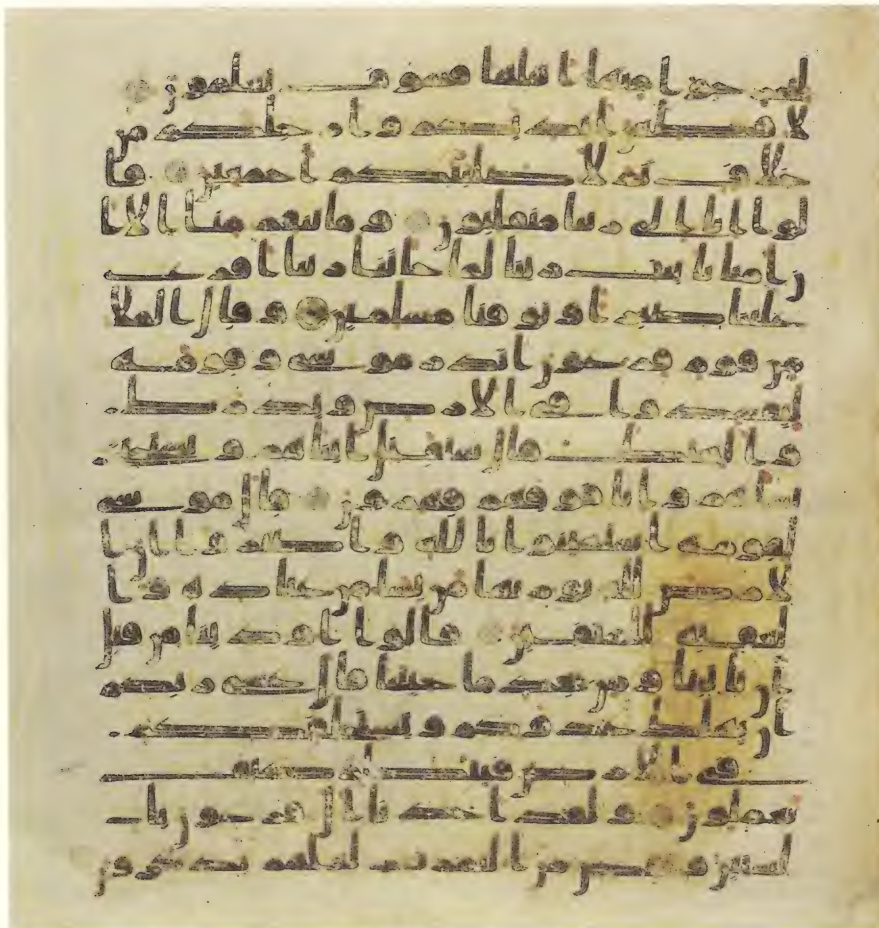 لتخرجوا منها اهلها فسوف تعلمون
لاقطعن ايديكم وارجلكم من
خلاف ثم لاصلبنكم اجمعين قا
لوا انا الى ربنا منقلبون وما تنقم منا الا ا
ن امنا بايت ربنا لما جاتنا ربنا افرغ
علينا صبرا وتوفنا مسلمين وقال الملا
من قوم فرعون اتذر موسى وقومه
ليفسدوا في الارض ويذرك
والهتك قال سنقتل ابناهم ونستحي
نساهم وانا فوقهم قهرون قال موسى
لقومه استعينوا بالله واصبروا ان ا
لارض لله يورثها من يشا من عباده وا
لعقبة للمتقين قالوا اوذينا من قبل
ان تاتينا ومن بعد ما جيتنا قال عسى ربكم
ان يهلك عدوكم ويستخلفكم
في الارض فينظر كيف
تعملون ولقد اخذنا ال فرعون با
لسنين ونقص من الثمرت لعلهم يذكرون